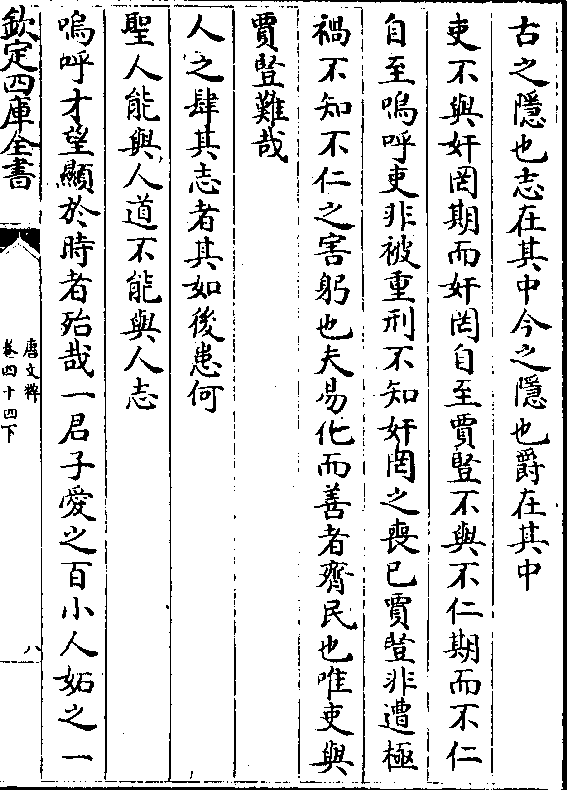 古之隱也志在其中今之隱也爵在其中
吏不與奸罔期而奸罔自至賈豎不與不仁期而不仁
自至嗚呼吏非被重刑不知奸罔之喪已賈豎非遭極
禍不知不仁之害躬也夫易化而善者齊民也唯吏與
賈豎難哉
人之肆其志者其如後患何
聖人能與人道不能與人志
嗚呼才望顯於時者殆哉一君子愛之百小人妬之一
欽定四庫全書
唐文粹
卷四十四下
八